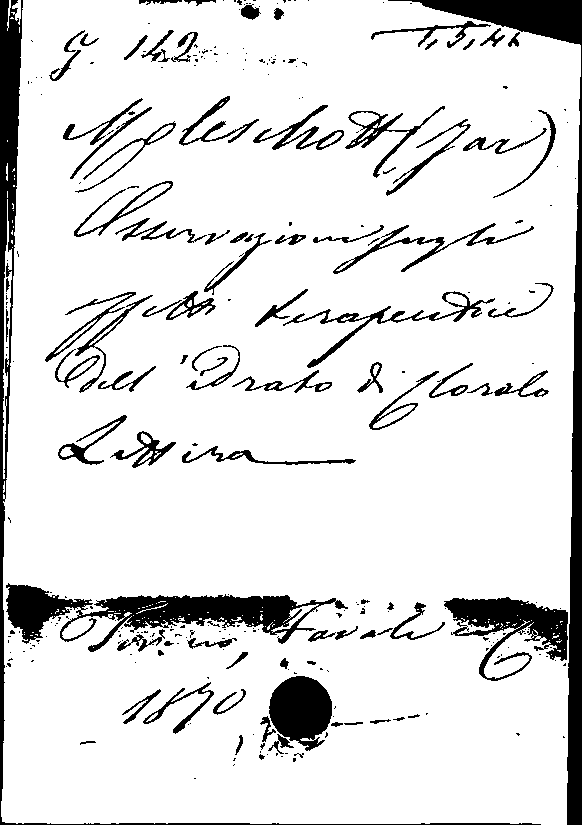 G. 142 I,5,46
Moleschott (Jac)
Osservazioni sugli
effetti terapeutici
dell'idrato di Cloralo
Lettera
Torino, Favale e C
1870